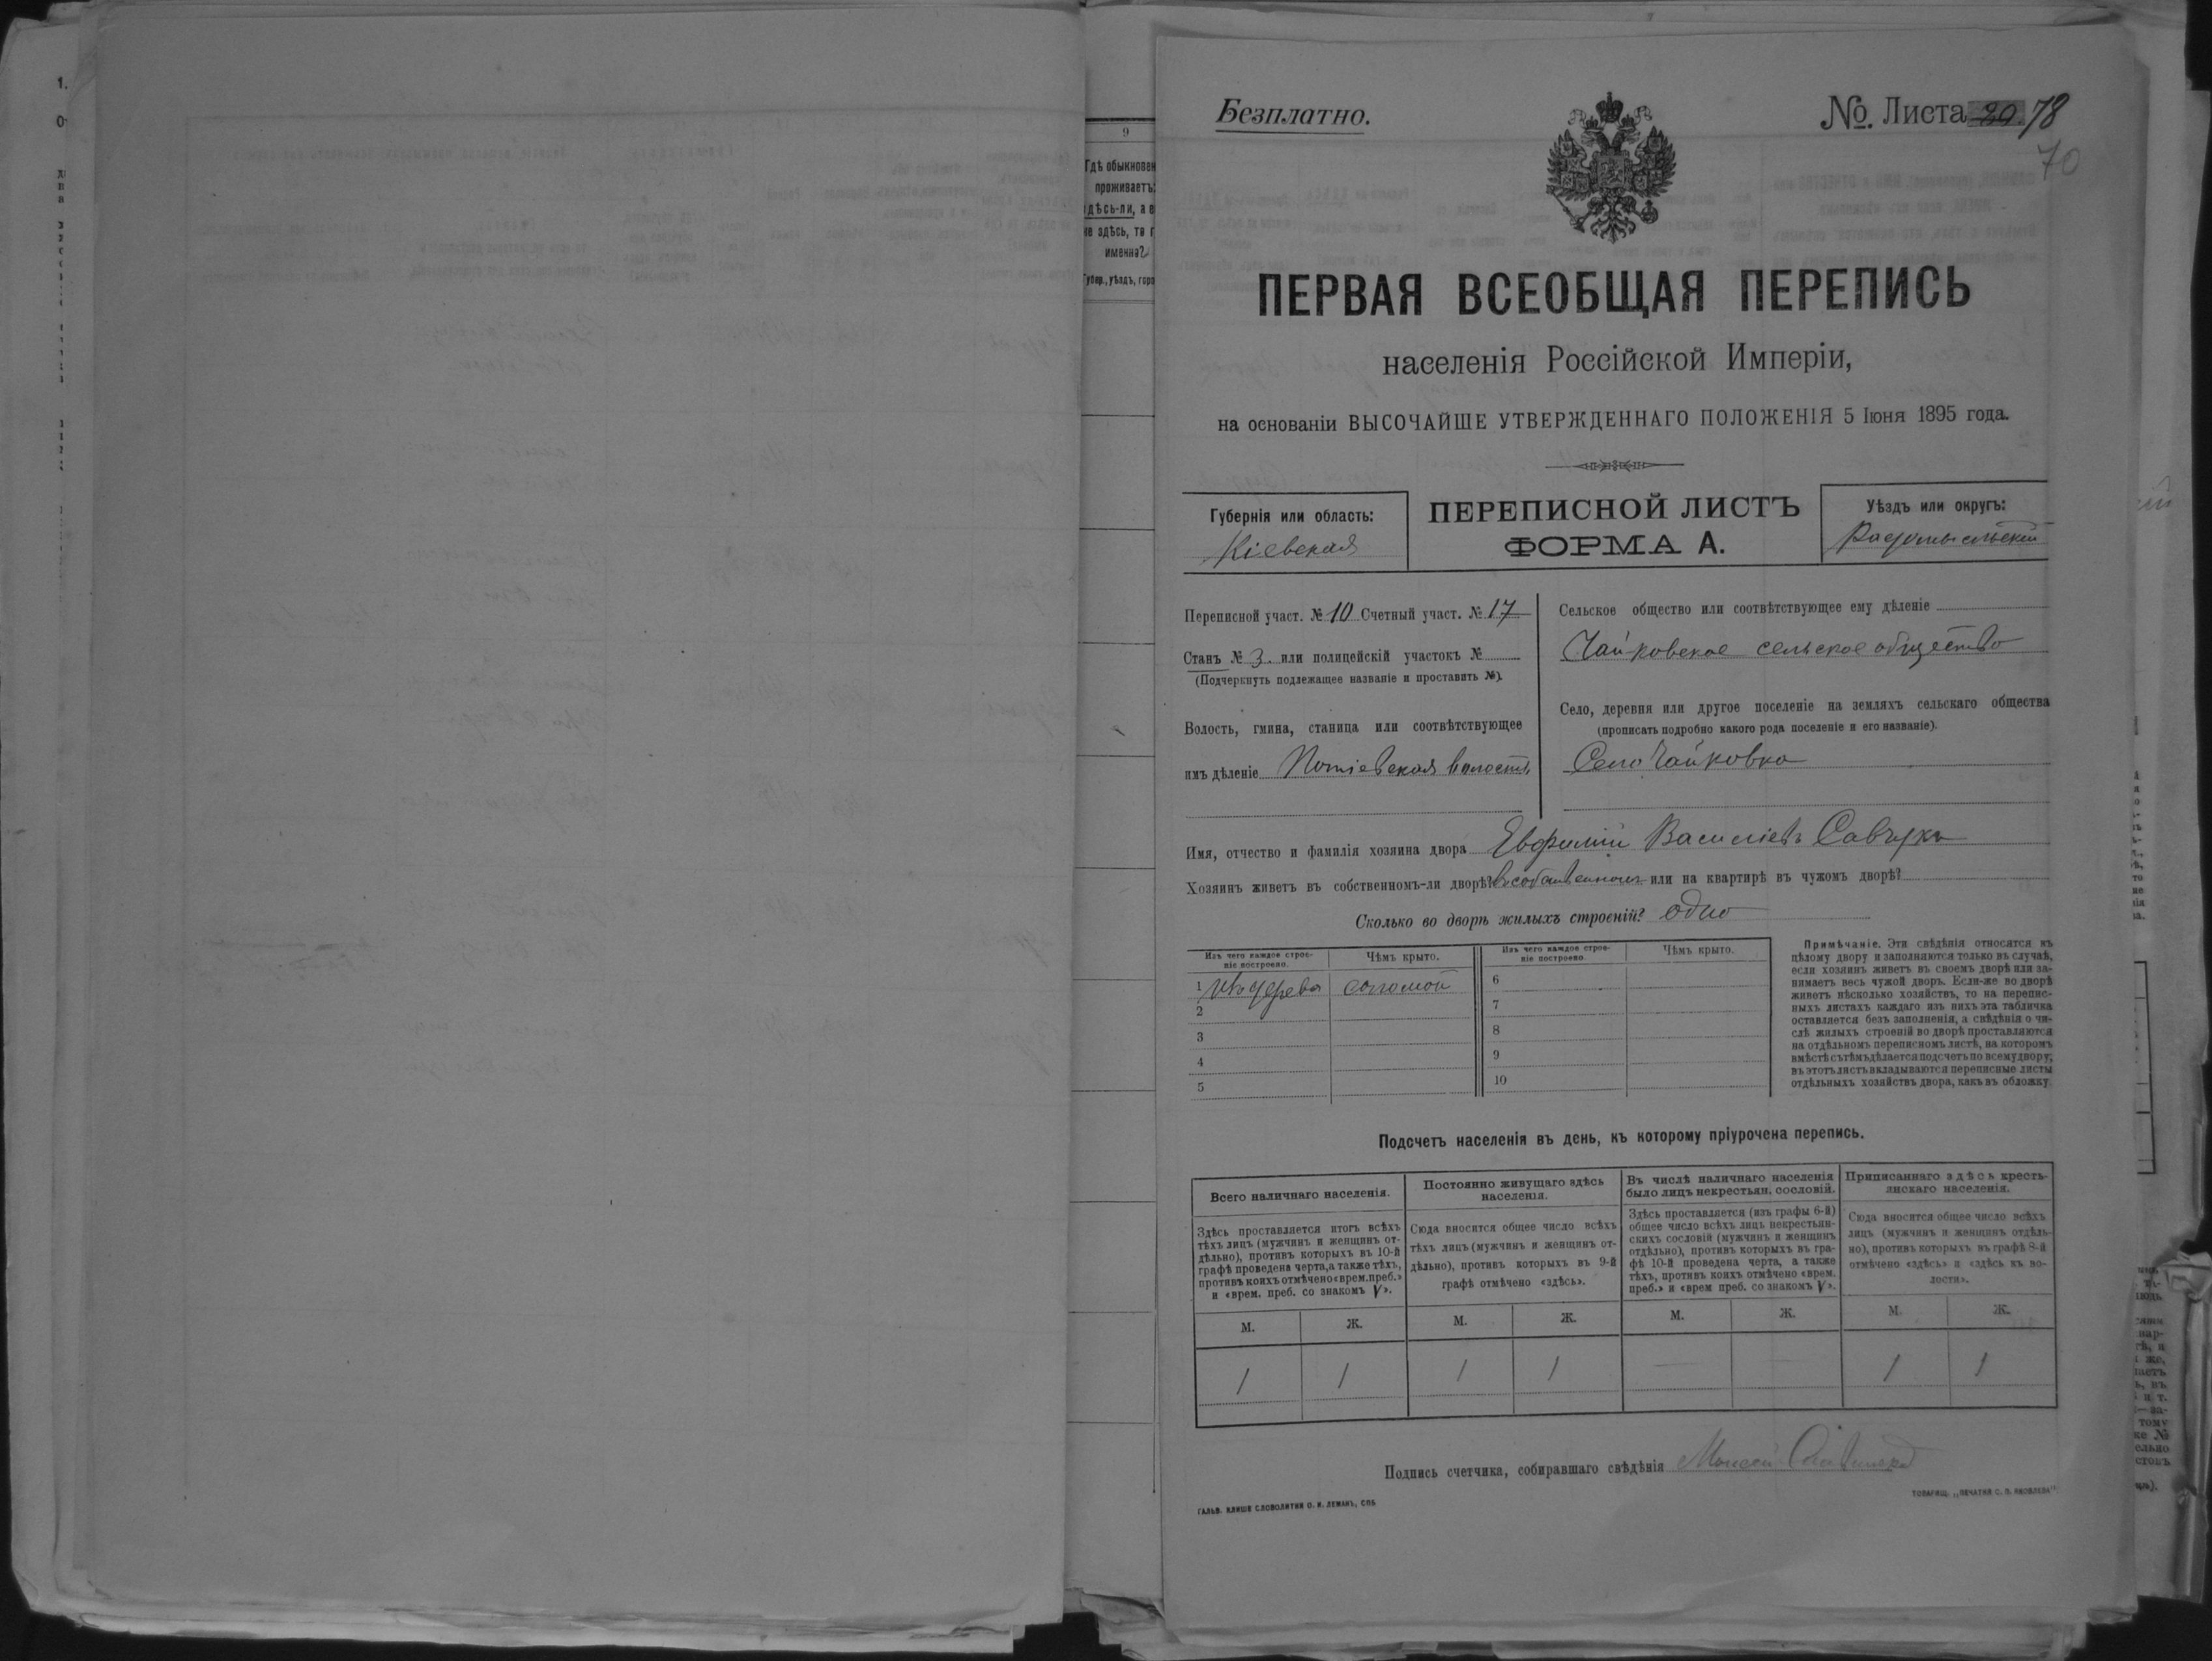 9
Гдѣ обыкновен
проживаетъ:
здѣсь-ли, а е
не здѣсь, то г
именно?
Губер., уѣздъ, горо
Безплатно.
№. Листа 20. 78
70
ПЕРВАЯ ВСЕОБЩАЯ ПЕРЕПИСЬ
населенія Россійской Имперіи,
на основаніи ВЫСОЧАЙШЕ УТВЕРЖДЕННАГО ПОЛОЖЕНІЯ 5 Іюня 1895 года.
Губернія или область:
Кіевская
ПЕРЕПИСНОЙ ЛИСТЪ
ФОРМА А.
Уѣздъ или округъ:
Радомысльскій
Переписной участ. № 10 Счетный участ. № 17
Станъ № 3. или полицейскій участокъ №
(Подчеркнуть подлежащее названіе и проставить №).
Волость, гмина, станица или соотвѣтствующее
имъ дѣленіе Потіевская волость
Сельское общество или соотвѣтствующее ему дѣленіе
Чайковское сельское общество
Село, деревня или другое поселеніе на земляхъ сельскаго общества
(прописать подробно какого рода поселеніе и его названіе).
Село Чайковка
Имя, отчество и фамилія хозяина двора Евфимій Василіевъ Савчукъ
Хозяинъ живетъ въ собственномъ-ли дворѣ? въ собственномъ или на квартирѣ въ чужомъ дворѣ?
Сколько во дворѣ жилыхъ строеній? одно
Изъ чего каждое строе-
ніе построено.
Чѣмъ крыто.
Изъ чего каждое строе-
ніе построено.
Чѣмъ крыто.
1 изъ дерева соломой
2
3
4
5
6
7
8
9
10
Примѣчаніе. Эти свѣдѣнія относятся къ
цѣлому двору и заполняются только въ случаѣ,
если хозяинъ живетъ въ своемъ дворѣ или за-
нимаетъ весь чужой дворъ. Если-же во дворѣ
живетъ нѣсколько хозяйствъ, то на перепис-
ныхъ листахъ каждаго изъ нихъ эта табличка
оставляется безъ заполненія, а свѣдѣнія о чи-
слѣ жилыхъ строеній во дворѣ проставляются
на отдѣльномъ переписномъ листѣ, на которомъ
вмѣстѣ съ тѣмъ дѣлается подсчетъ по всему двору;
въ этотъ листъ вкладываются переписные листы
отдѣльныхъ хозяйствъ двора, какъ въ обложку.
Подсчетъ населенія въ день, къ которому пріурочена перепись.
Всего наличнаго населенія.
Здѣсь проставляется итогъ всѣхъ
тѣхъ лицъ (мужчинъ и женщинъ от-
дѣльно), противъ которыхъ въ 10-й
графѣ проведена черта, а также тѣхъ,
противъ коихъ отмѣчено «врем. преб.»
и «врем. преб. со знакомъ V».
Постоянно живущаго здѣсь
населенія.
Сюда вносится общее число всѣхъ
тѣхъ лицъ (мужчинъ и женщинъ от-
дѣльно), противъ которыхъ въ 9-й
графѣ отмѣчено «здѣсь».
Въ числѣ наличнаго населенія
было лицъ некрестьян. сословій.
Здѣсь проставляется (изъ графы 6-й)
общее число всѣхъ лицъ некрестьян-
скихъ сословій (мужчинъ и женщинъ
отдѣльно), противъ которыхъ въ гра-
фѣ 10-й проведена черта, а также
тѣхъ, противъ коихъ отмѣчено «врем.
преб.» и «врем преб. со знакомъ V».
Приписаннаго здѣсь кресть-
янскаго населенія.
Сюда вносится общее число всѣхъ
лицъ (мужчинъ и женщинъ отдѣль-
но), противъ которыхъ въ графѣ 8-й
отмѣчено «здѣсь» и «здѣсь къ во-
лости».
М. Ж. М. Ж. М. Ж. М. Ж.
1 1 1 1 — — 1 1
Подпись счетчика, собиравшаго свѣдѣнія
ГАЛЬВ. КЛИШЕ СЛОВОЛИТНИ О. И. ЛЕМАНЪ, СПБ
ТОВАРИЩ. „ПЕЧАТНЯ С. П. ЯКОВЛЕВА"